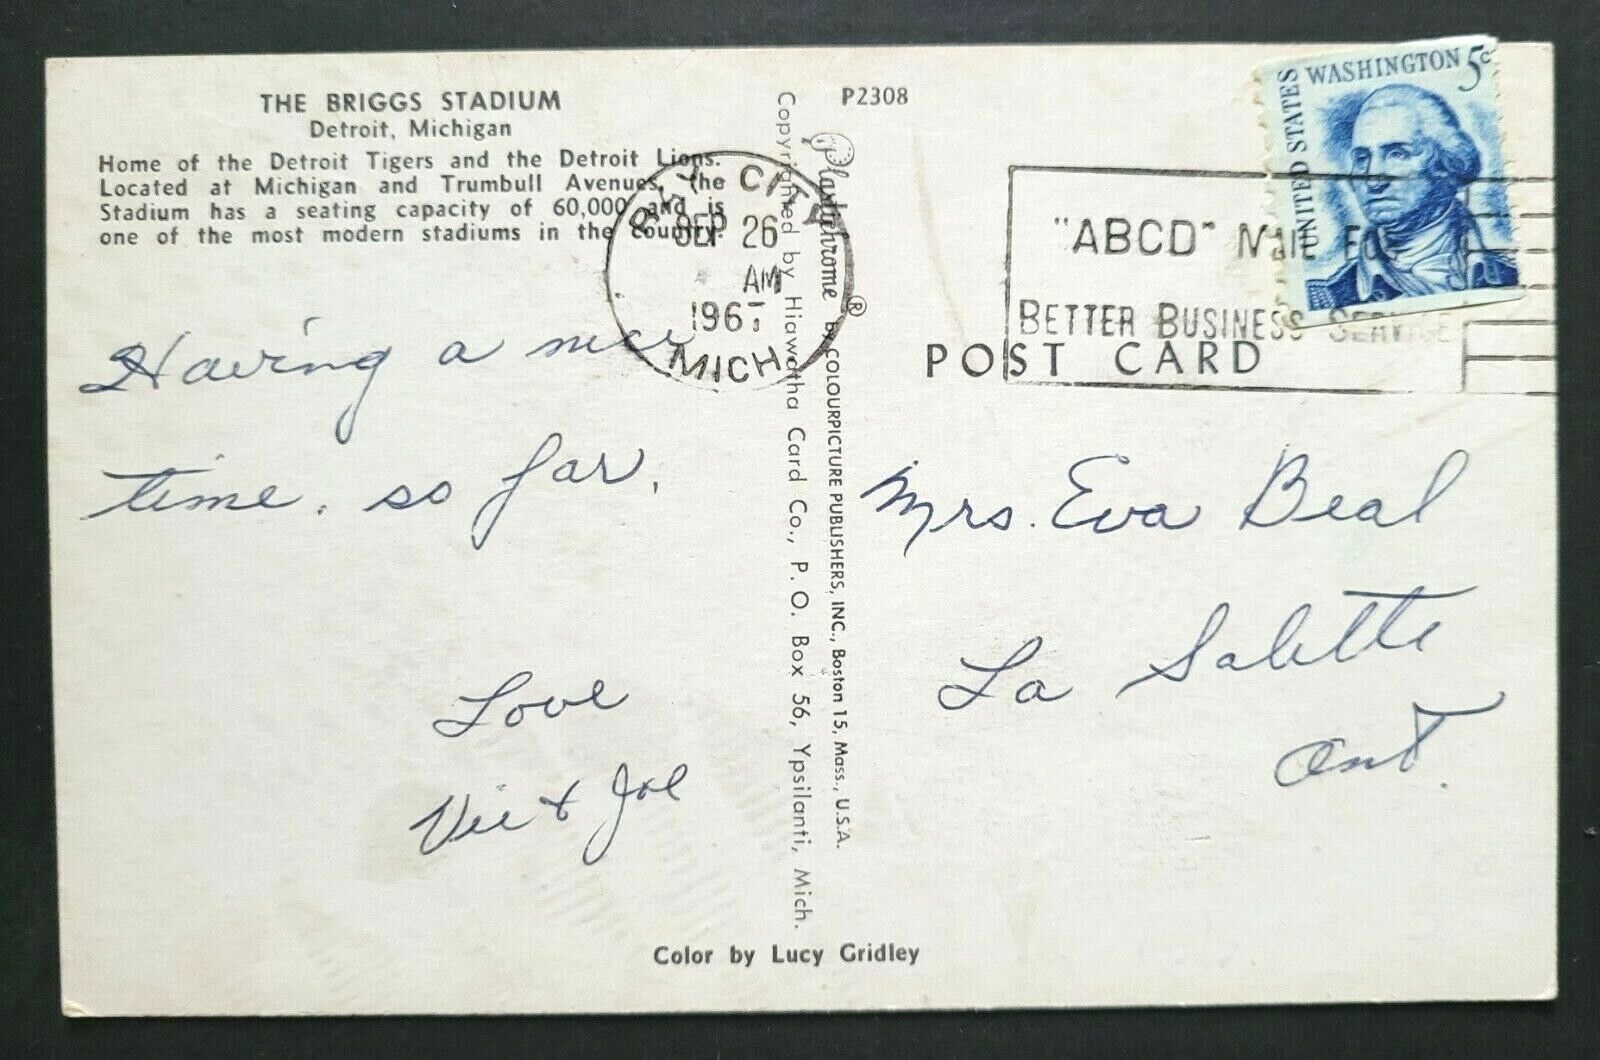 THE BRIGGS STADIUM
Detroit, Michigan
Home of the Detroit Tigers and the Detroit Lions.
Located at Michigan and Trumbull Avenues, the
Stadium has a seating capacity of 60,000 and is
one of the most modern stadiums in the country.
Having a nice
time, so far,
Love
Vic & Joe
Color by Lucy Gridley
Copyrighted by Hiawatha Card Co., P. O. Box 56, Ypsilanti, Mich.
Plastichrome ® by COLOURPICTURE PUBLISHERS, INC., Boston 15, Mass., U.S.A.
P2308
BAY CITY
SEP 26
AM
196
MICH
"ABCD" MAIL FOR
BETTER BUSINESS SERVICE
UNITED STATES
WASHINGTON 5c
POST CARD
Mrs. Eva Beal
La Salette
Ont.